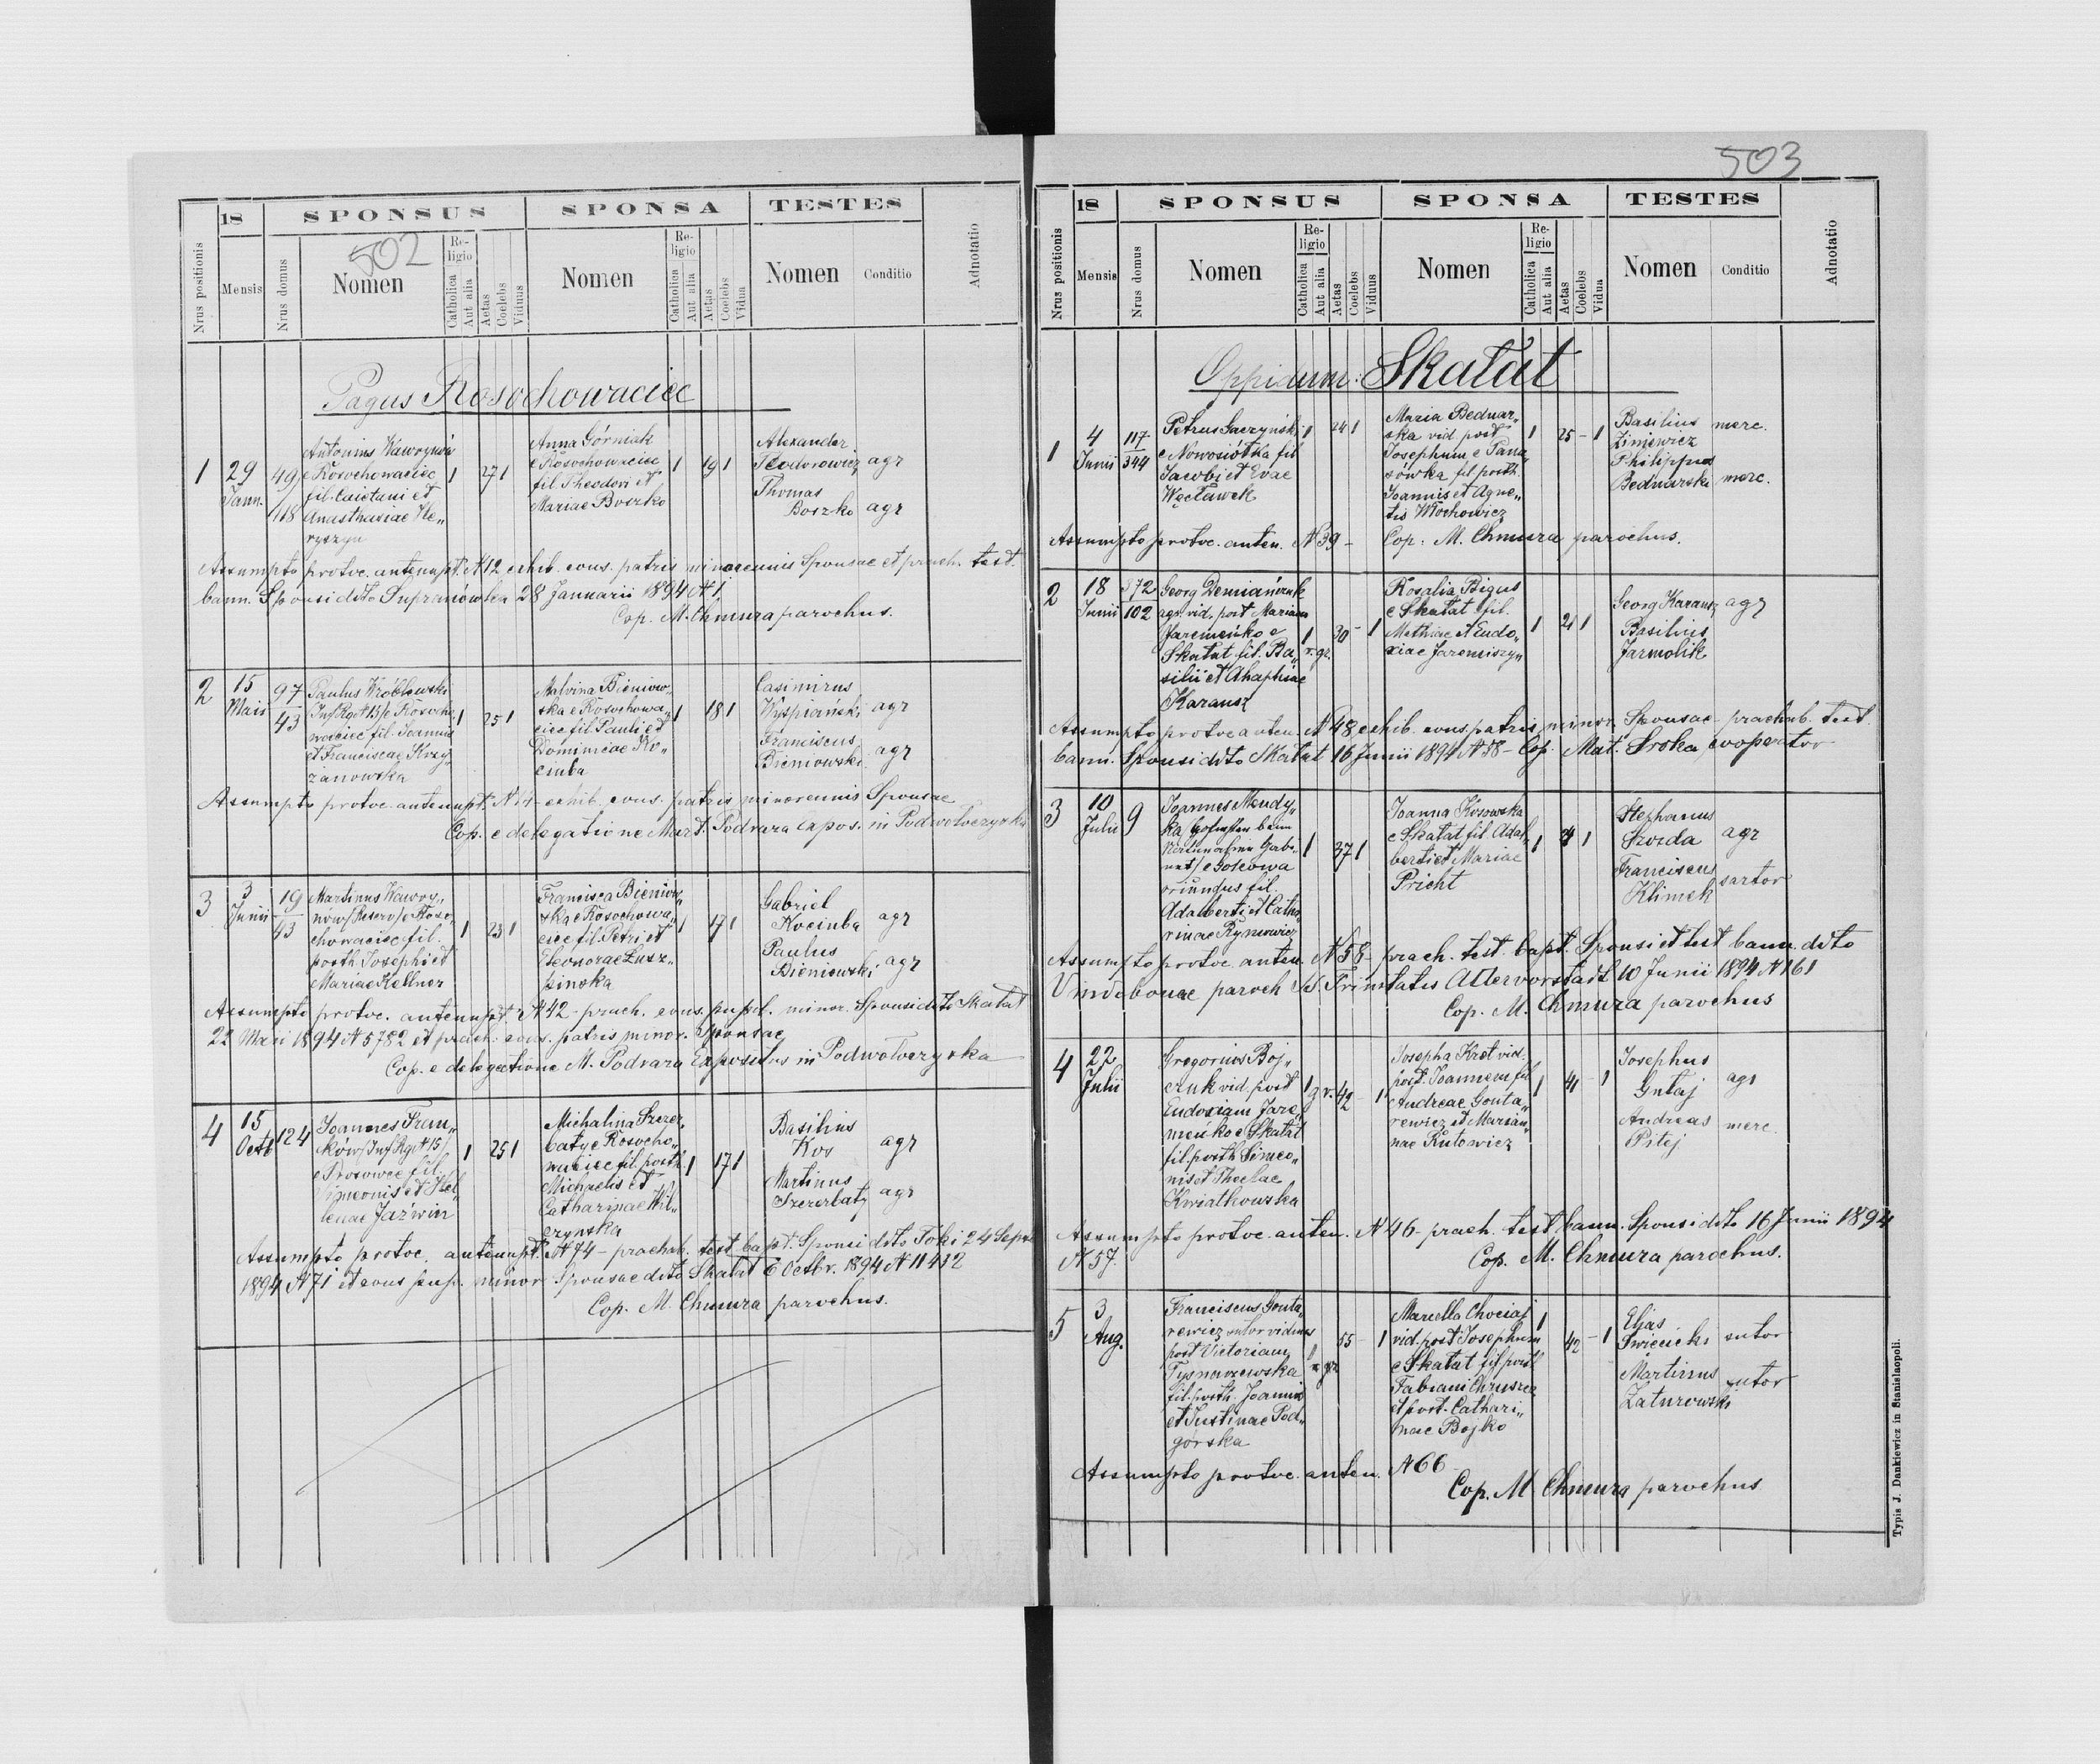 503
18 SPONSUS SPONSA TESTES
Nrus positionis Mensis Nrus domus 502 Nomen Religio Catholica Aut alia Aetas Coelebs Viduus Nomen Religio Catholica Aut alia Aetas Coelebs Vidua Nomen Conditio Adnotatio
Pagus Rosochowaciec
1 29 Jann. 49 118
Antonius Wawrynów
e Rosochowaciec
fil. Caietani et
Anasthasiae He„
ryszyn
1 27 1
Anna Górniak
e Rosochowaciec
fil. Theodori et
Mariae Boszko
1 19 1
Alexander
Teodorowicz agr
Thomas
Boszko agr
Assumpto protoc. antenupt. N 12 exhib. cons. patris minorennis Sponsae et prach. test.
bann. Sponsi dtto Supranówka 28 Januarii 1894 N 1.
Cop. M. Chmura parochus.
2 15 Maii 97 43
Paulus Wróblewski
Inf Rg N 15/ e Rosocho„
waciec fil. Joannis
et Franciscae Krzy„
żanowska
1 25 1
Malvina Bieniow„
ska e Rosochowa„
ciec fil. Pauli et
Dominicae Ko„
ciuba
1 18 1
Casimirus
Wyspiański agr
Franciscus
Bieniowski agr
Assumpto protoc. antenupt. N 14 - exhib. cons. patris minorennis Sponsae
Cop. e delegatione Mart. Podraza expos. in Podwołoczyska
3 3 Junii 19 43
Martinus Wawry„
nów / Reserv/ e Roso„
chowaciec fil.
posth. Josephi et
Mariae Kellner
1 23 1
Francisca Bieniow„
ska e Rosochowa„
ciec fil. Petri et
Eleonorae Łusz„
pinska
1 17 1
Gabriel
Kociuba agr
Paulus
Bieniowski agr
Assumpto protoc. antenupt. N 42 - prach. cons. pupil. minor. Sponsi dtto Skałat
22 Maii 1894 N 5782 et prach. cons. patris minor. Sponsae
Cop. e delegatione M. Podraza Expositus in Podwołoczyska
4 15 Octb 124
Joannes Fran„
ków / Inf Rg N 15/
e Prosowce fil.
Simeonis et Hel„
lenae Jaźwin
1 25 1
Michalina Szczer„
baty e Rosocho„
waciec fil. posth.
Michaelis et
Catharinae Wil„
czynska
1 17 1
Basilius
Kos agr
Martinus
Szczerbaty agr
Assumpto protoc. antenupt. N 74 - prachab. test. bapt. Sponsi dtto Toki 24 Septe
1894 N 71 et cons pup. minor Sponsae dtto Skałat 6 Octbr. 1894 N 11432
Cop. M. Chmura parochus.
18 SPONSUS SPONSA TESTES
Nrus positionis Mensis Nrus domus Nomen Religio Catholica Aut alia Aetas Coelebs Viduus Nomen Religio Catholica Aut alia Aetas Coelebs Vidua Nomen Conditio Adnotatio
Oppidum: Skałat
1 4 Junii 117 344
Petrus Saczyński
e Nowosiółka fil
Jacobi et Evae
Węcławek
1 24 1
Maria Bednar„
ska vid. post
Josephum e Pana„
sówka, fil. posth.
Joannis et Agne„
tis Włochowicz
1 25 - 1
Basilius merc.
Ziniewicz
Philippus
Bednarski merc.
Assumpto protoc. anten. N 39 - Cop. M. Chmura parochus.
2 18 Junii 372 102
Georg Demiańczuk
agr. vid. post Mariam
Jaremeńko e
Skałat fil. Ba„
silii et Ahaphiae
Karausz
1 r. gr. 30 - 1
Rosalia Bigus
e Skałat fil.
Mathiae et Eudo„
xiae Jaremiszyn
1 21 1
Georg Karausz agr
Basilius
Jarmolik
Assumpto protoc anten. N 48, exhib. cons. patris minor. Sponsae - prachab. test.
bann. Sponsi dtto Skałat 16 Junii 1894 N 58 - Cop. Mat. Sroka, cooperator
3 10 Julii 9
Joannes Mendy„
ka
e Goscowa
oriundus fil.
Adalberti et Catha„
rinae Rynwicz
1 37 1
Joanna Kosowska
e Skałat fil. Adal„
berti et Mariae
Pricht
1 24 1
Stephanus
Szozda agr
Franciscus
Klimek sartor
Assumpto protoc. anten. N 58 - prach. test. bapt. Sponsi et test bann. dtto
Vindobonae paroch SS. Trinitatis Alservorstadt 10 Junii 1894 N 161
Cop. M. Chmura parochus
4 22 Julii
Gregorius Boj„
czuk vid. post
Eudoxiam Jare„
meńko e Skałat
fil. posth. Simeo„
nis et Theclae
Kwiatkowska
1 g r. 42 - 1
Josepha Kret vid.
post. Joannem fil
Andreae Gonta„
rewicz et Marian„
nae Rutowicz
1 41 - 1
Josephus
Gutaj agr
Andreas merc.
Pitej
Assumpto protoc. anten. N 46 - prach. test bann. Sponsi dtto 16 Junii 1894
N 57. Cop. M. Chmura parochus.
5 3 Aug.
Franciscus Gonta„
rewicz sutor viduus
post Victoriam
Tysnarzewska
fil. posth. Joannis
et Justinae Pod„
górska
1 r. gr 55 - 1
Marcella Chociaj
vid. post Josephum
e Skałat fil posth
Fabiani Chruszcz
et post. Cathari„
nae Bojko
1 42 - 1
Elias
Swiencicki sutor
Martinus sutor
Zaturowski
Assumpto protoc. anten. N 66
Cop. M Chmura parochus
Typis J. Dankiewicz in Stanislaopoli.